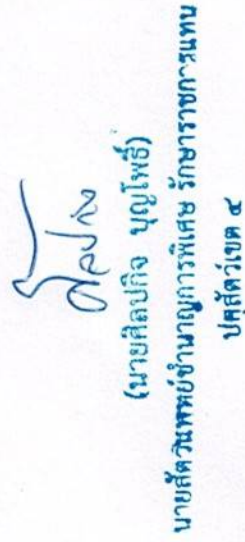 (นายศิลปกิจ บุญโพธิ์)
นายสัตวแพทย์ชำนาญการพิเศษ รักษาราชการแทน
ปศุสัตว์เขต ๔